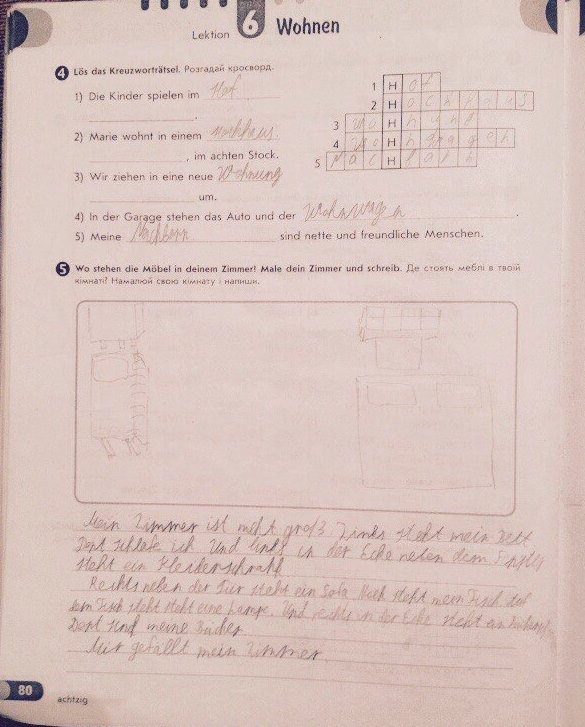 Lektion 6 Wohnen
4 Lös das Kreuzworträtsel. Розгадай кросворд.
1) Die Kinder spielen im Hof
2) Marie wohnt in einem Hochhaus
, im achten Stock.
3) Wir ziehen in eine neue Wohnung
um.
4) In der Garage stehen das Auto und der Wohnwagen.
5) Meine Nachbarn sind nette und freundliche Menschen.
1 Hof
2 Hochhaus
3 Wohnung
4 Wohnwagen
5 Nachbarn
5 Wo stehen die Möbel in deinem Zimmer? Male dein Zimmer und schreib. Де стоять меблі в твоїй
кімнаті? Намалюй свою кімнату і напиши.
Mein Zimmer ist nicht groß. Links steht mein Bett
Dort schlafe ich. Und links in der Ecke neben dem
steht ein Kleiderschrank
Rechts neben der Tür steht ein Sofa. steht mein Tisch
dem Tisch steht steht eine Lampe. Und rechts in der Ecke steht ein
Dort sind meine Bücher
Mir gefällt mein Zimmer.
80
achtzig